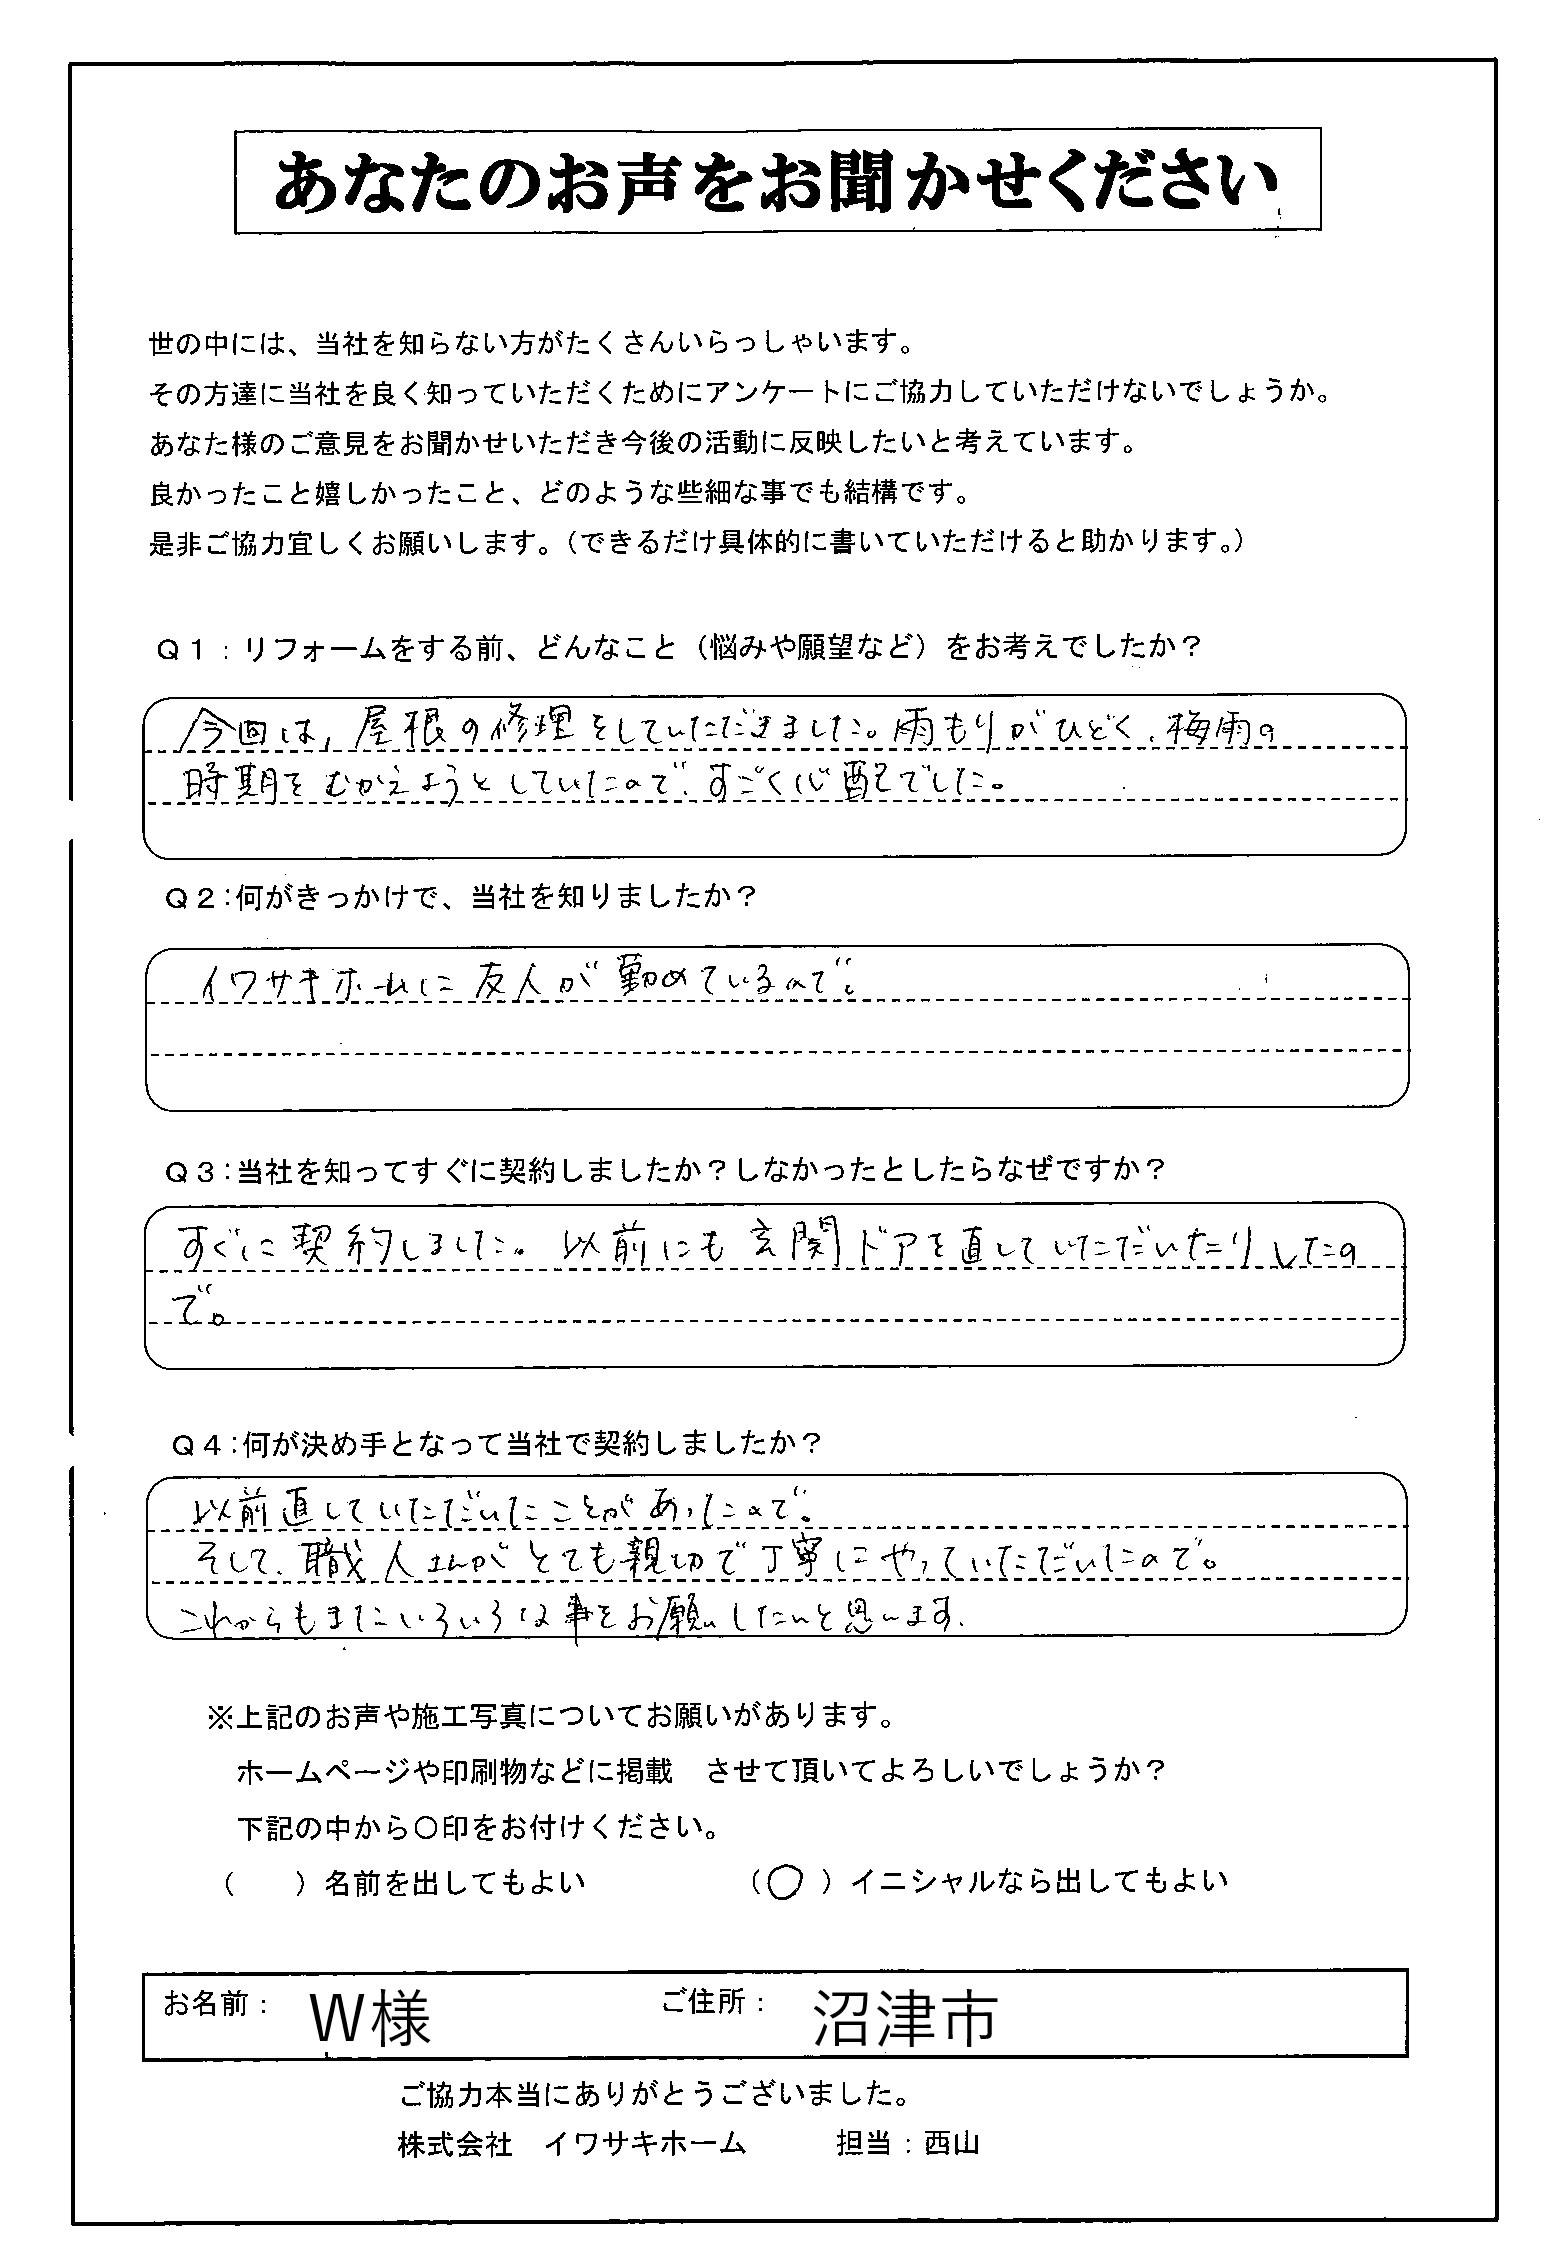 あなたのお声をお聞かせください
世の中には、当社を知らない方がたくさんいらっしゃいます。
その方達に当社を良く知っていただくためにアンケートにご協力していただけないでしょうか。
あなた様のご意見をお聞かせいただき今後の活動に反映したいと考えています。
良かったこと嬉しかったこと、どのような些細な事でも結構です。
是非ご協力宜しくお願いします。（できるだけ具体的に書いていただけると助かります。）
Ｑ１：リフォームをする前、どんなこと（悩みや願望など）をお考えでしたか？
今回は、屋根の修理をしていただきました。雨もりがひどく、梅雨の
時期をむかえようとしていたので、すごく心配でした。
Ｑ２：何がきっかけで、当社を知りましたか？
イワサキホームに友人が勤めているので。
Ｑ３：当社を知ってすぐに契約しましたか？しなかったとしたらなぜですか？
すぐに契約しました。以前にも玄関ドアを直していただいたりしたの
で。
Ｑ４：何が決め手となって当社で契約しましたか？
以前直していただいたことがあったので。
そして、職人さんがとても親切で丁寧にやっていただいたので。
これからもまたいろいろな事をお願いしたいと思います。
※上記のお声や施工写真についてお願いがあります。
ホームページや印刷物などに掲載　させて頂いてよろしいでしょうか？
下記の中から〇印をお付けください。
（　　）名前を出してもよい　　　　　（〇）イニシャルなら出してもよい
お名前：　W様　　　　　ご住所：　沼津市
ご協力本当にありがとうございました。
株式会社　イワサキホーム　　　担当：西山